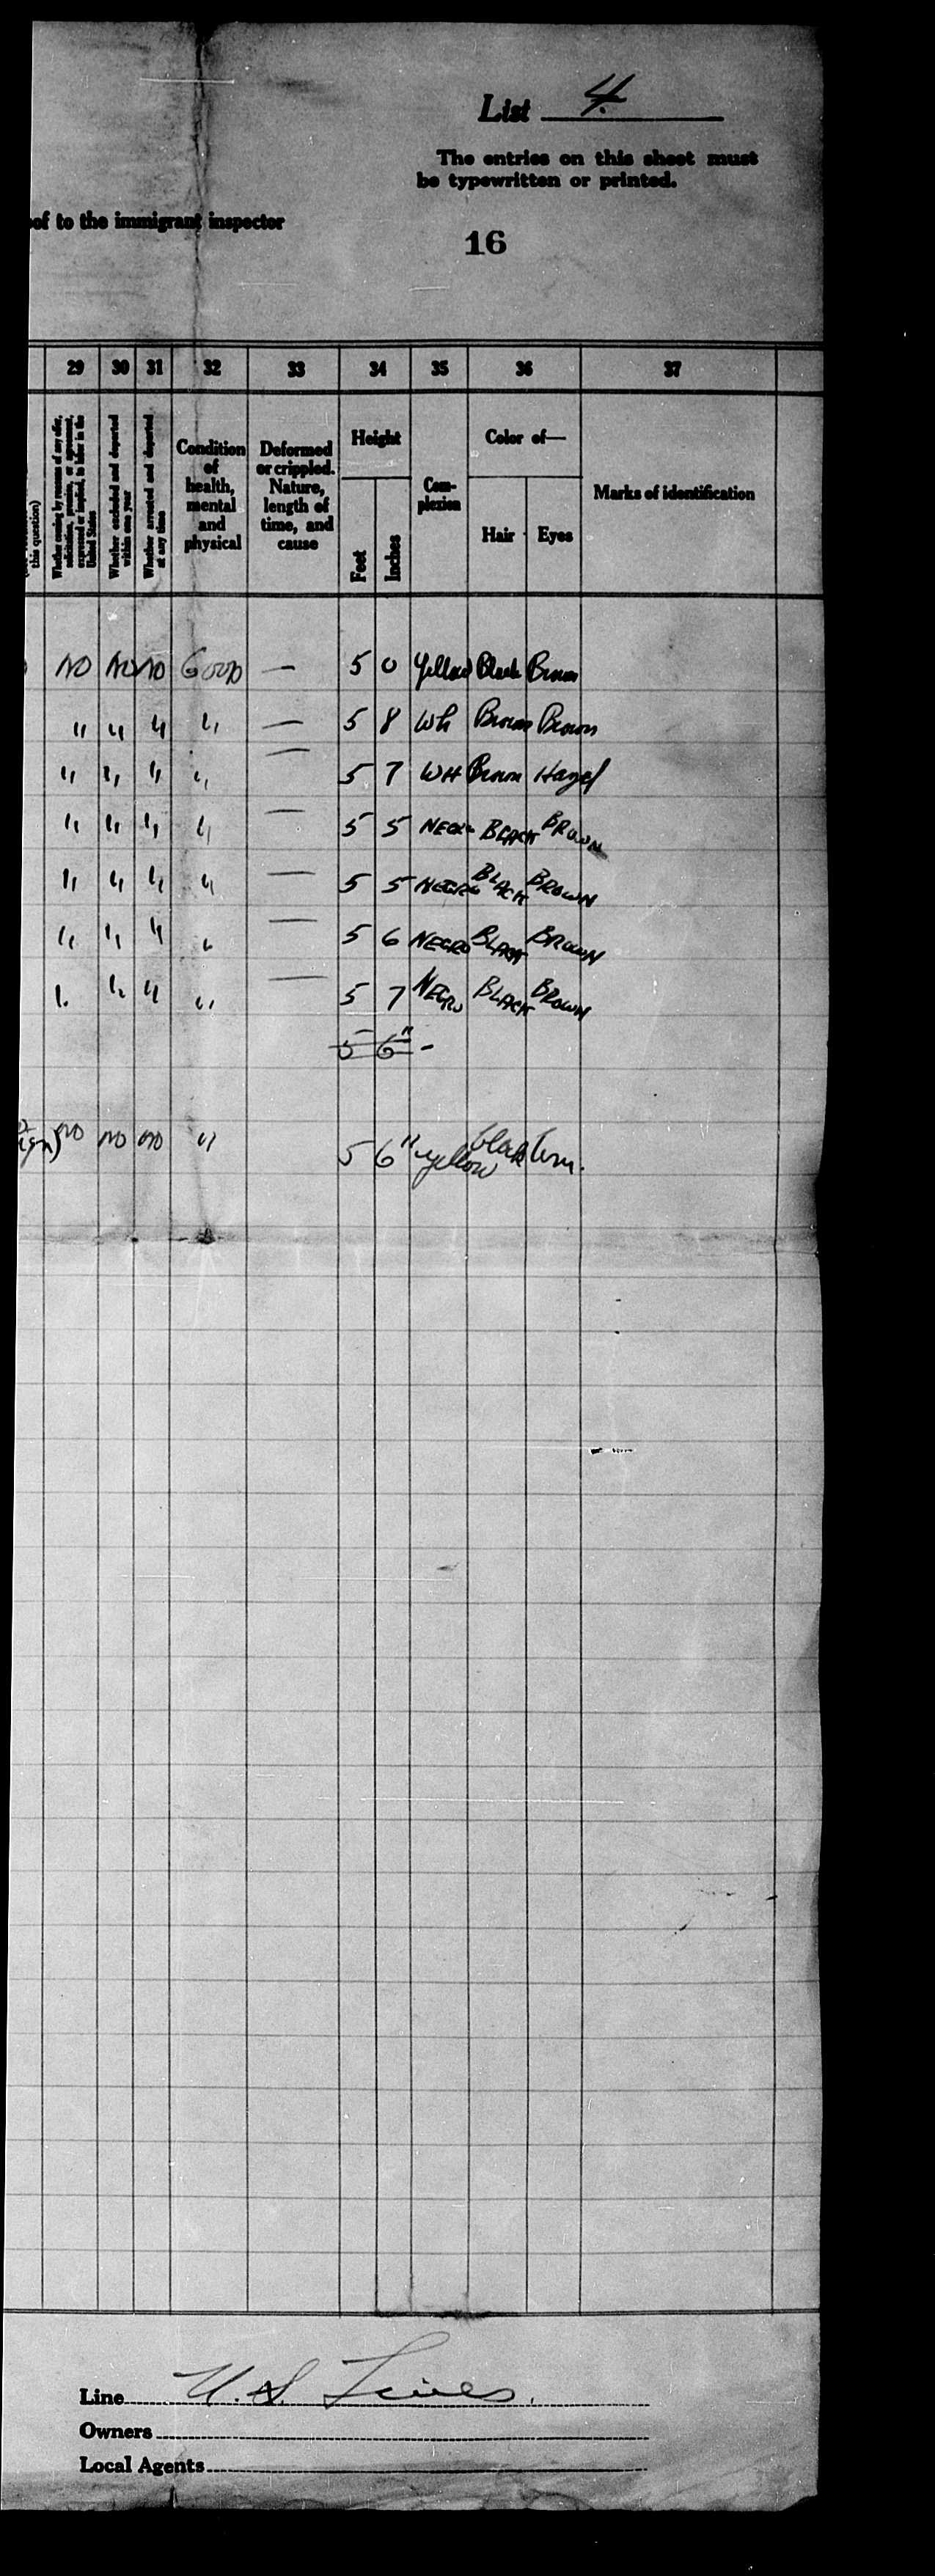 List 4.
The entries on this sheet must
be typewritten or printed.
of to the immigrant inspector
16
29 30 31 32 33 34 35 36 37
this question)
Whether coming by reason of any offer, solicitation, promise, or agreement, expressed or implied, to labor in the United States
Whether excluded and deported within one year
Whether arrested and deported at any time
Condition of health, mental and physical
Deformed or crippled. Nature, length of time, and cause
Height
Feet Inches
Com-
plexion
Color of—
Hair Eyes
Marks of identification
NO NO NO GOOD — 5 0 Yellow Black Brown
" " " " — 5 8 Wh Brown Brown
" " " " — 5 7 WH Brown Hazel
" " " " — 5 5 NEGRO BLACK BROWN
" " " " — 5 5 NEGRO BLACK BROWN
" " " " — 5 6 NEGRO BLACK BROWN
" " " " — 5 7 NEGRO BLACK BROWN
5 6" -
NO NO NO " 5 6" yellow black brn.
Line U.S. Lines.
Owners
Local Agents